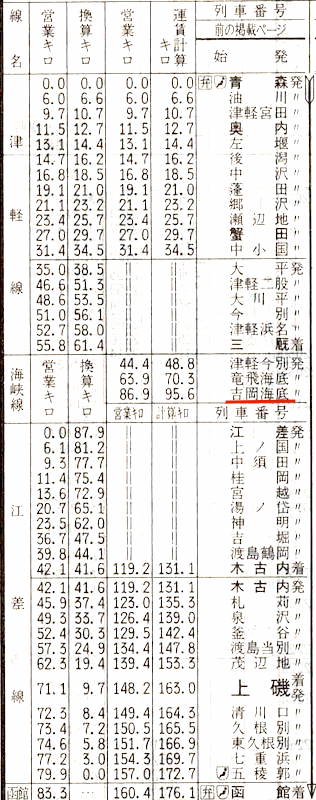 線名 営業キロ 換算キロ 営業キロ 運賃計算キロ 列車番号
前の掲載ページ
始 発
津軽線
0.0 0.0 0.0 0.0 弁 青森発
6.0 6.6 6.0 6.6 油川〃
9.7 10.7 9.7 10.7 津軽宮田〃
11.5 12.7 11.5 12.7 奥内〃
13.1 14.4 13.1 14.4 左堰〃
14.7 16.2 14.7 16.2 後潟〃
16.8 18.5 16.8 18.5 中沢〃
19.1 21.0 19.1 21.0 蓬田〃
21.1 23.2 21.1 23.2 郷沢〃
23.4 25.7 23.4 25.7 瀬辺地〃
27.0 29.7 27.0 29.7 蟹田〃
31.4 34.5 31.4 34.5 中小国〃
35.0 38.5 || || 大平発
46.6 51.3 || || 津軽二股〃
48.6 53.5 || || 大川平〃
51.0 56.1 || || 今別〃
52.7 58.0 || || 津軽浜名〃
55.8 61.4 || || 三厩着
海峡線 営業キロ 換算キロ
44.4 48.8 津軽今別発
63.9 70.3 竜飛海底〃
86.9 95.6 吉岡海底〃
営業キロ 計算キロ 列車番号
江差線
0.0 87.9 || || 江差発
6.1 81.2 || || 上ノ国〃
9.3 77.7 || || 中須田〃
11.4 75.4 || || 桂岡〃
13.6 72.9 || || 宮越〃
20.7 65.1 || || 湯ノ岱〃
23.5 62.0 || || 神明〃
36.7 47.5 || || 吉堀〃
39.8 44.1 || || 渡島鶴岡〃
42.1 41.6 119.2 131.1 木古内着
42.1 41.6 119.2 131.1 木古内発
45.9 37.4 123.0 135.3 札苅〃
49.3 33.7 126.4 139.0 泉沢〃
52.4 30.3 129.5 142.4 釜谷〃
57.3 24.9 134.4 147.8 渡島当別〃
62.3 19.4 139.4 153.3 茂辺地〃
71.1 9.7 148.2 163.0 上磯着発
72.3 8.4 149.4 164.3 清川口〃
73.4 7.2 150.5 165.5 久根別〃
74.6 5.8 151.7 166.9 東久根別〃
77.2 3.0 154.3 169.7 七重浜〃
79.9 0.0 157.0 172.7 五稜郭〃
函館 83.3 … 160.4 176.1 弁 函館着